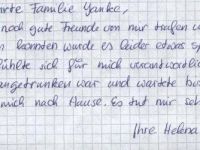 hrte Familie Yanke,
noch gute Freunde von mir trafen u
n konnten wurde es leider etwas sp
ühlte sich für mich verantwortlic
ngetrunken war und wartete bi
mich nach Hause. Es tut mir seh
Ihre Helena